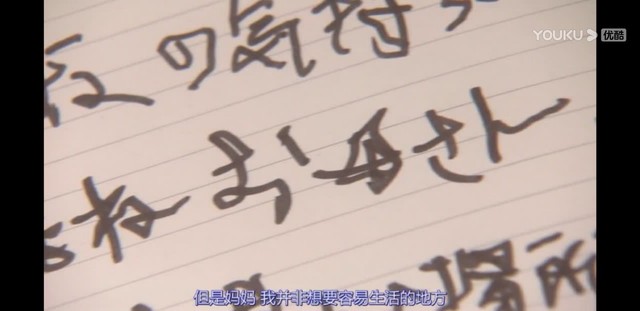 YOUKU 优酷
の気持
ね お母さん
場所
但是妈妈 我并非想要容易生活的地方